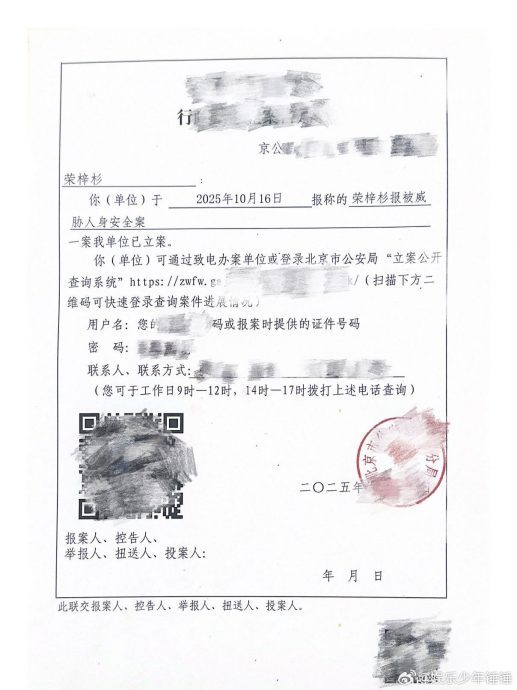 行
京公
荣梓杉:
你（单位）于 2025年10月16日 报称的 荣梓杉报被威
胁人身安全案
一案我单位已立案。
你（单位）可通过致电办案单位或登录北京市公安局“立案公开
查询系统”https://zwfw.g /（扫描下方二
维码可快速登录查询案件进展情况）
用户名: 您的 码或报案时提供的证件号码
密 码:
联系人、联系方式:
（您可于工作日9时—12时，14时—17时拨打上述电话查询）
北京市 分局
二〇二五年
报案人、控告人、
举报人、扭送人、投案人:
年 月 日
此联交报案人、控告人、举报人、扭送人、投案人。
@娱乐少年锤锤